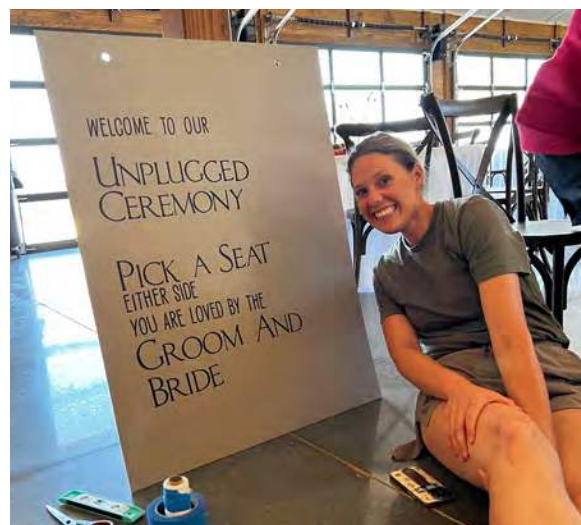 WELCOME TO OUR
UNPLUGGED
CEREMONY
PICK A SEAT
EITHER SIDE
YOU ARE LOVED BY THE
GROOM AND
BRIDE